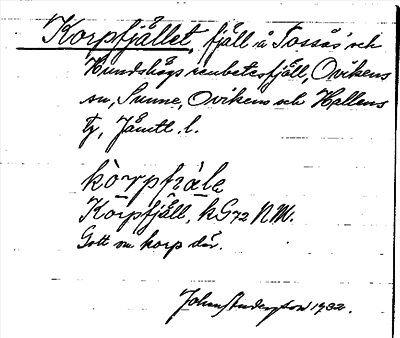 Korpfjället, fjäll å Tossås och
Hundshögs renbetesfjäll, Ovikens
sn, Sunne, Ovikens och Hallens
tg, Jämtl. l.
kòrpfiàlę
Körpfjäll, kG72 NM.
Gott om korp där.
Johan Anderzson 1932.